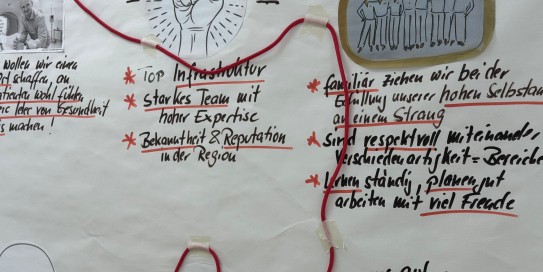 wollen wir einen
schaffen, an
wohl fühlen
Idee von Gesundheit
machen!
* Top Infrastruktur
* starkes Team mit
hoher Expertise
* Bekanntheit & Reputation
in der Region
* familiär ziehen wir bei der
Erfüllung unserer hohen
an einem Strang
* sind respektvoll miteinander
Verschiedenartigkeit = Bereiche
* lernen ständig, planen gut
arbeiten mit viel Freude